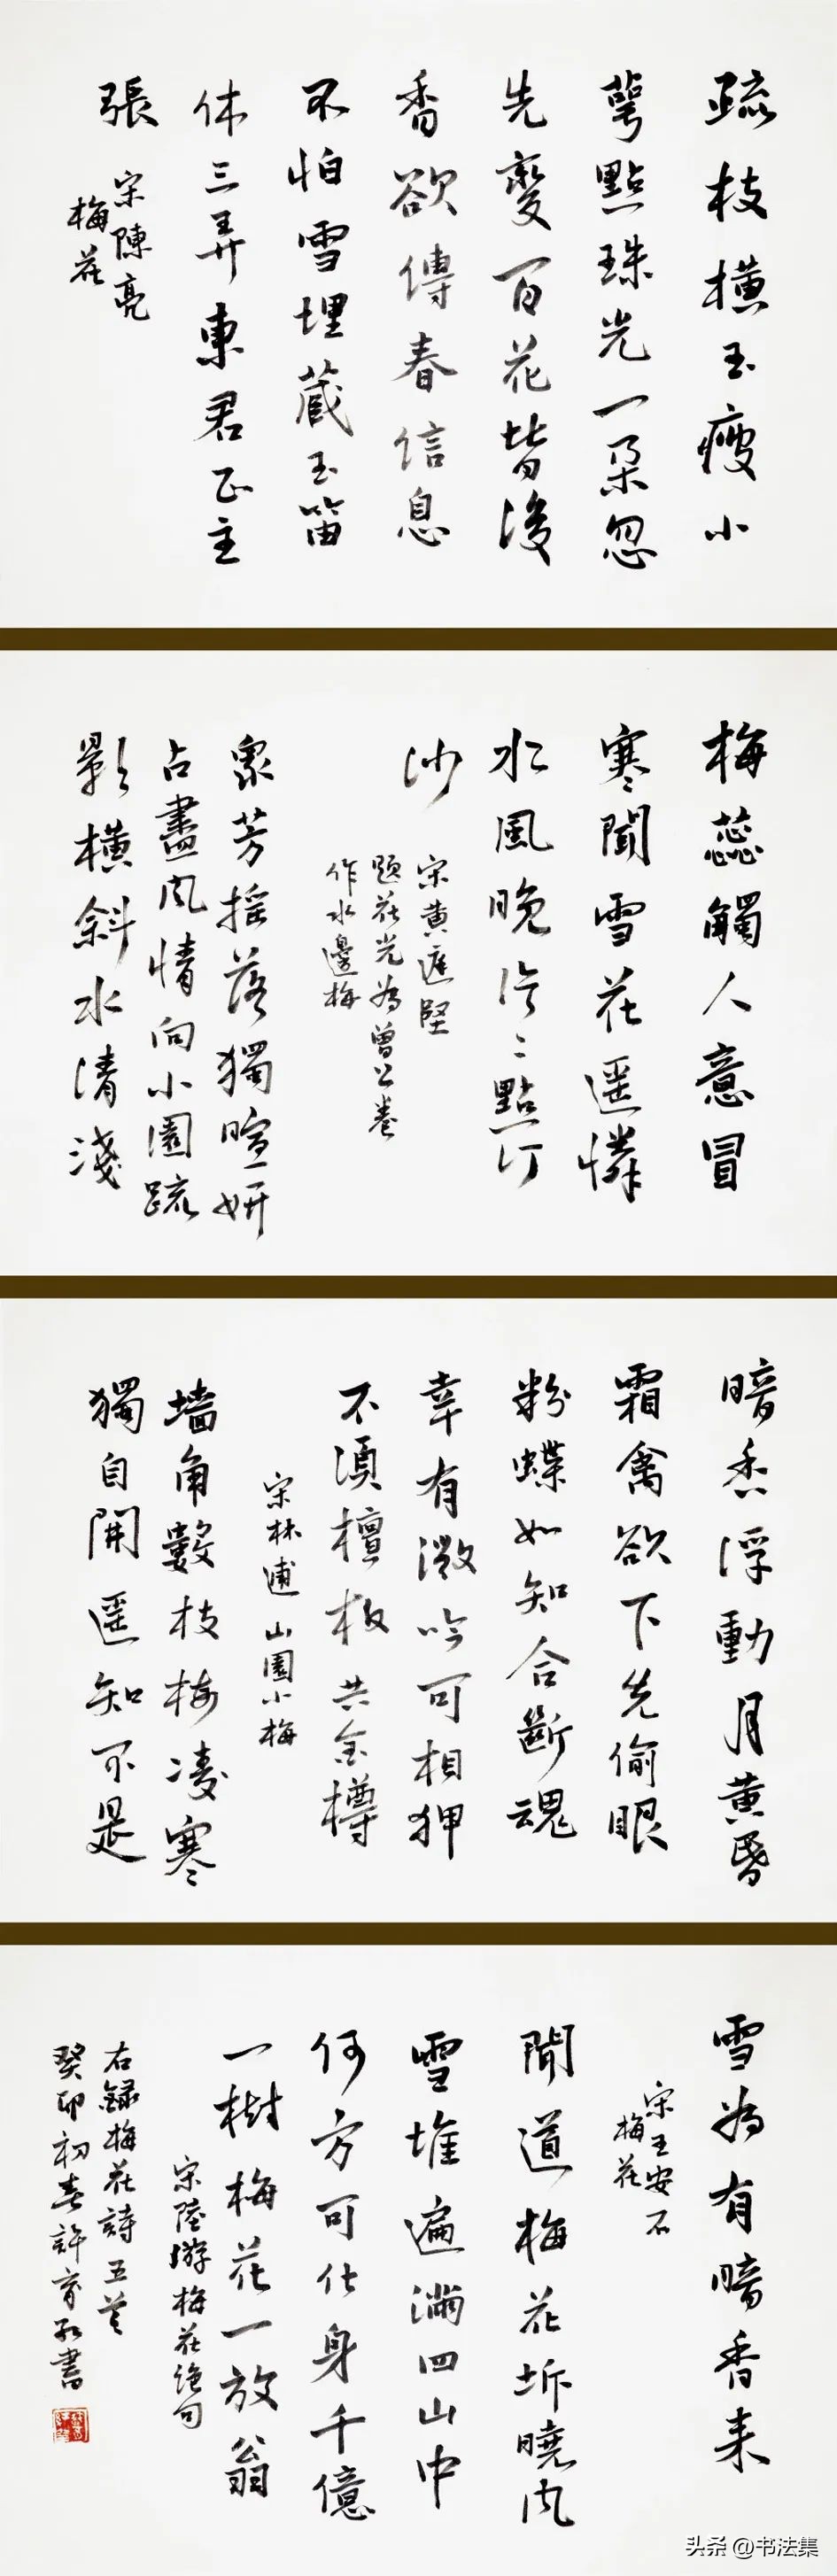 疏枝橫玉瘦小
萼點珠光一朵忽
先變百花皆後
香欲傳春信息
不怕雪埋藏玉笛
休三弄東君正主
張
宋陳亮
梅花
梅蕊觸人意冒
寒開雪花遥憐
水風晚片〻點汀
沙
宋黄庭堅
題花光為曾公卷
作水邊梅
衆芳摇落獨暄妍
占盡風情向小園疏
影橫斜水清淺
暗香浮動月黄昏
霜禽欲下先偷眼
粉蝶如知合斷魂
幸有微吟可相狎
不須檀板共金樽
宋林逋 山園小梅
墙角數枝梅凌寒
獨自開遥知不是
雪為有暗香来
宋王安石
梅花
聞道梅花坼曉風
雪堆遍滿四山中
何方可化身千億
一樹梅花一放翁
宋陸游梅花絶句
右録梅花詩五首
癸卯初春許育
書
头条 @书法集